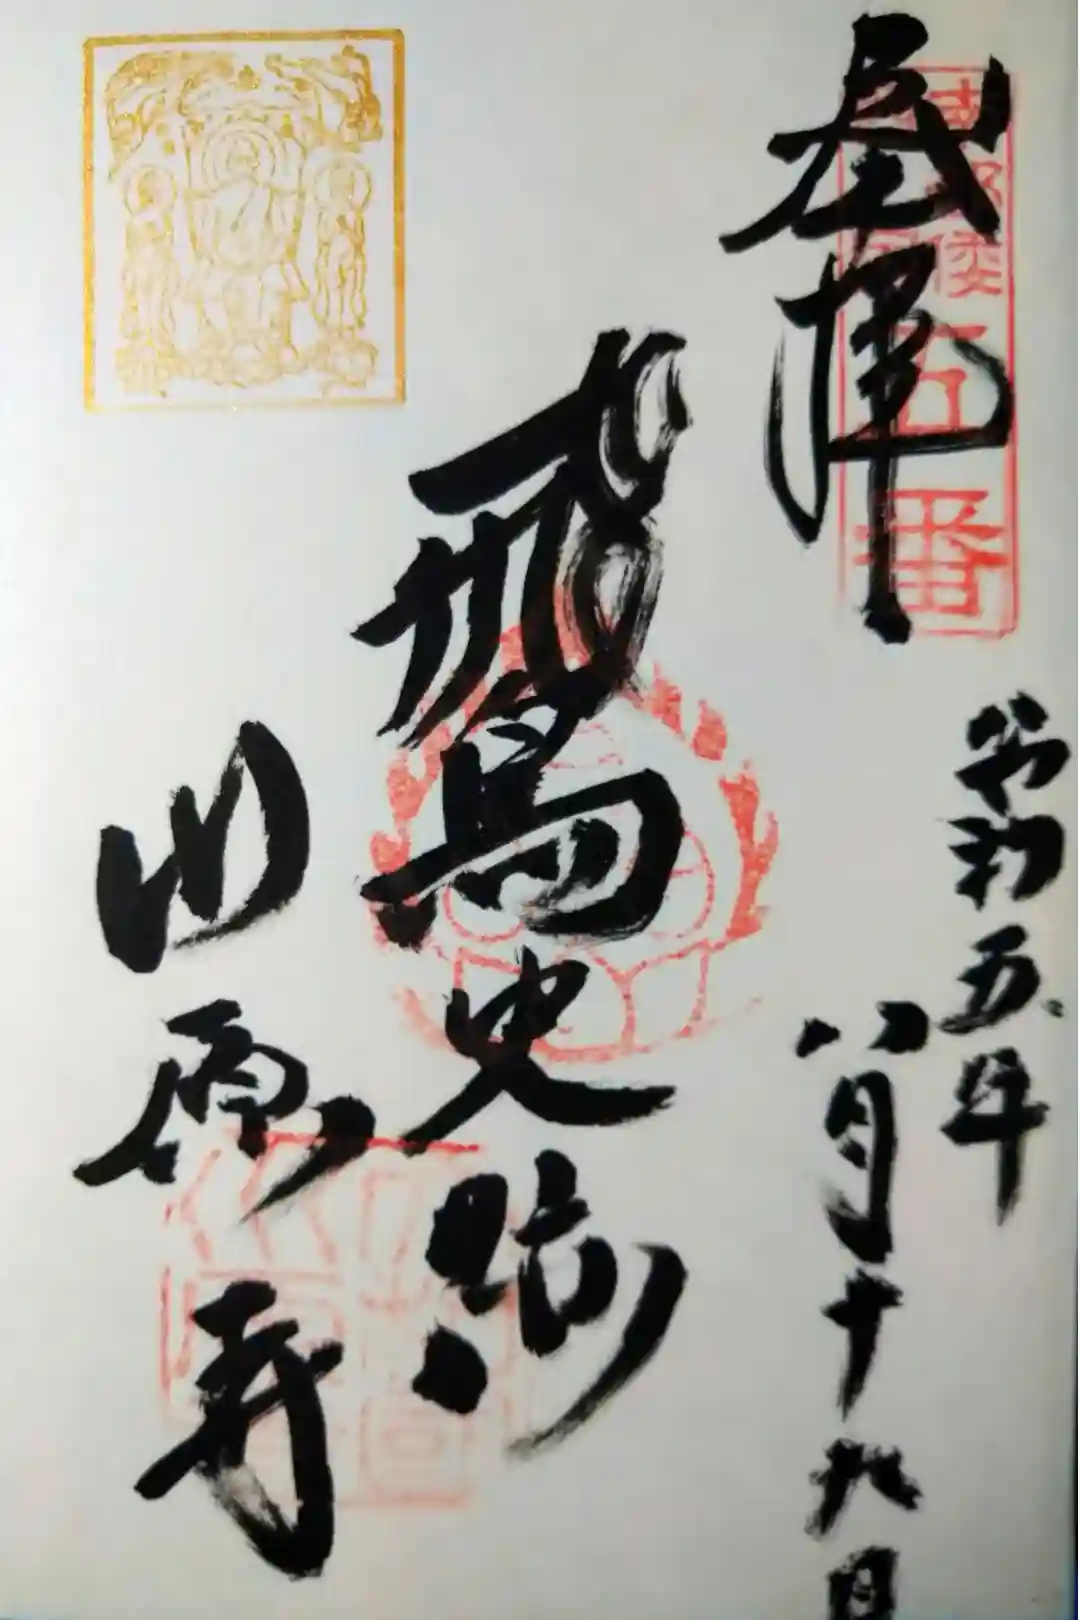 奉拝
五番
令和五年
八月十九日
飛鳥史跡
川原寺